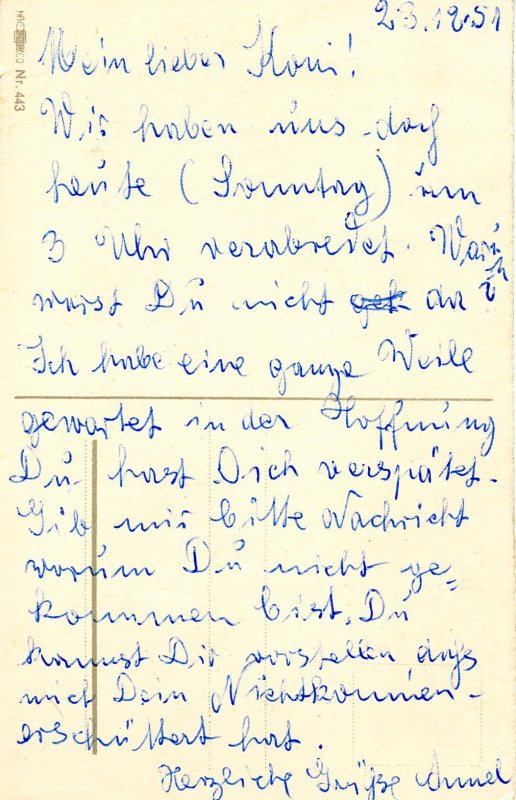 Nr. 443
23.12.51
Mein lieber Koni!
Wir haben uns doch
heute (Sonntag) um
3 Uhr verabredet. Warum
warst Du nicht da?
Ich habe eine ganze Weile
gewartet in der Hoffnung
Du hast Dich verspätet.
Gib mir bitte Nachricht
warum Du nicht ge-
kommen bist. Du
kannst Dir vorstellen dass
mich Dein Nichtkommen
erschüttert hat.
Herzliche Grüße